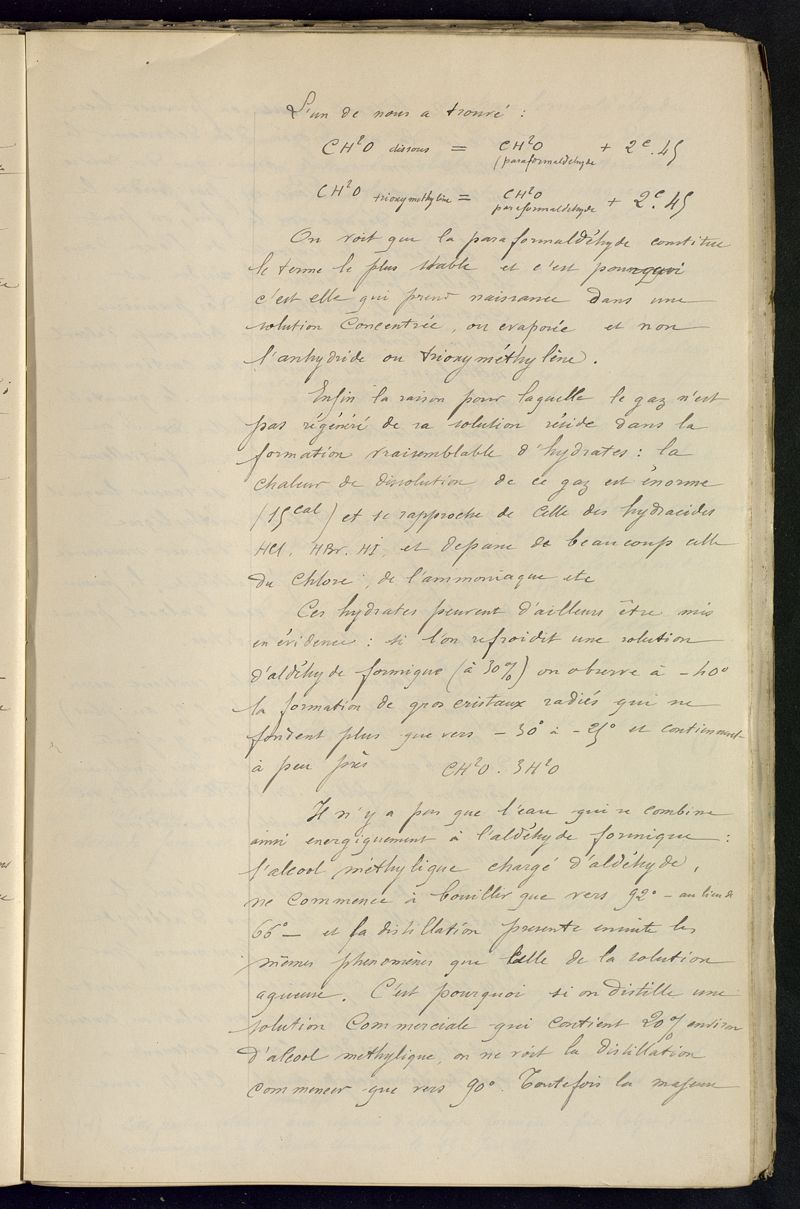 L'un de nous a trouvé :
CH²O dissous = CH²O (paraformaldehyde + 2ᶜ.45
CH²O trioxymethylène = CH²O paraformaldehyde + 2ᶜ.45
On voit que la paraformaldéhyde constitue
le terme le plus stable et c'est pourquoi
c'est elle qui prend naissance dans une
solution concentrée, ou evaporée et non
l'anhydride ou trioxyméthylène.
Enfin la raison pour laquelle le gaz n'est
pas régénéré de sa solution réside dans la
formation vraisemblable d'hydrates : la
chaleur de dissolution de ce gaz est énorme
(15 cal) et se rapproche de celle des hydracides
HCl, HBr. HI, et depasse de beaucoup celle
du Chlore, de l'ammoniaque etc
Ces hydrates peuvent d'ailleurs être mis
en évidence : si l'on refroidit une solution
d'aldéhyde formique (à 30%) on observe à -40°
la formation de gros cristaux radiés qui ne
fondent plus que vers -30° à -25° et contiennent
à peu près CH²O. 3H²O
Il n'y a pas que l'eau qui se combine
ainsi energiquement à l'aldéhyde formique :
l'alcool méthylique chargé d'aldéhyde,
ne commence à bouillir que vers 92° - au lieu de
66° - et la distillation presente ensuite les
mêmes phenomènes que celle de la solution
aqueuse. C'est pourquoi si on distille une
solution Commerciale qui contient 20% environ
d'alcool methylique, on ne voit la distillation
commencer que vers 90°. Toutefois la majeure